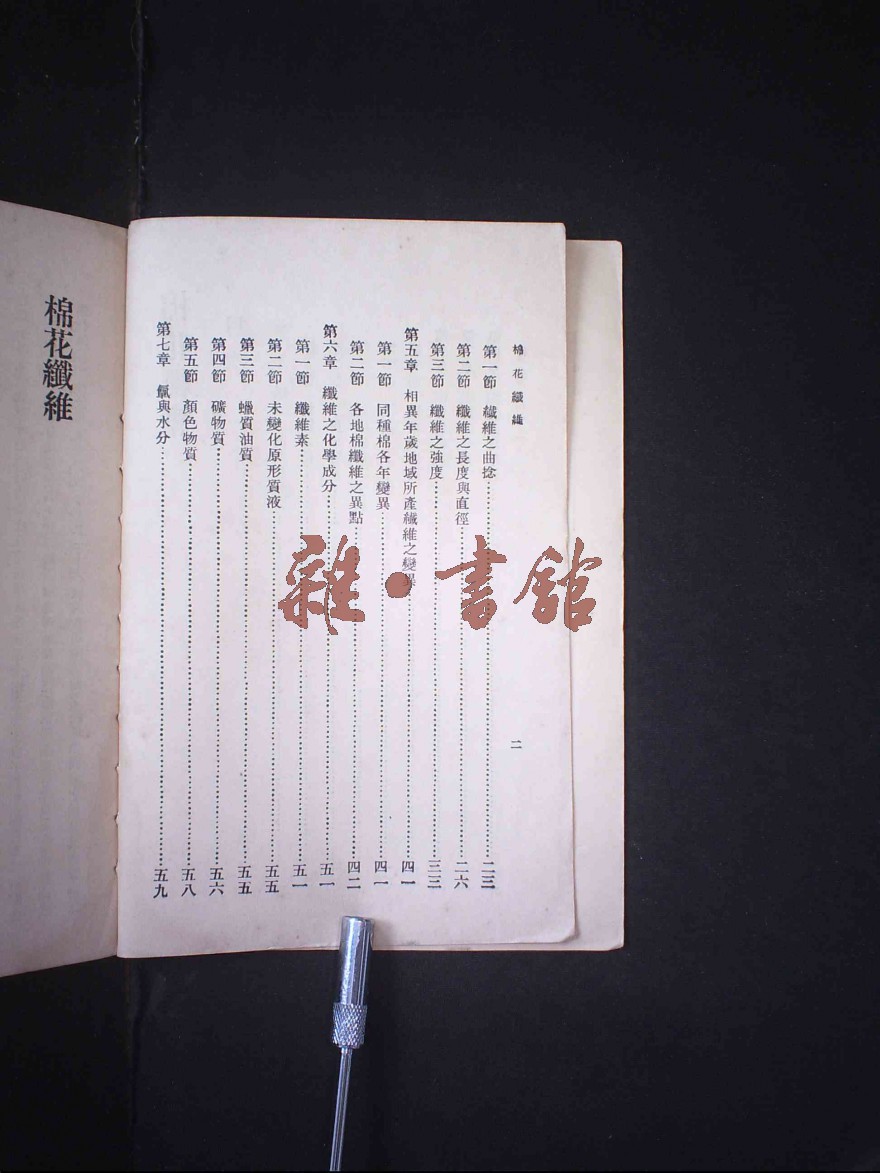 棉花纖維 二
第一節 纖維之曲捻……二三
第二節 纖維之長度與直徑……二六
第三節 纖維之強度……三三
第五章 相異年歲地域所產纖維之變異……四一
第一節 同種棉各年變異……四一
第二節 各地棉纖維之異點……四二
第六章 纖維之化學成分……五一
第一節 纖維素……五一
第二節 未變化原形質液……五五
第三節 蠟質油質……五五
第四節 礦物質……五六
第五節 顏色物質……五八
第七章 與水分……五九
棉花纖維
雜·書館